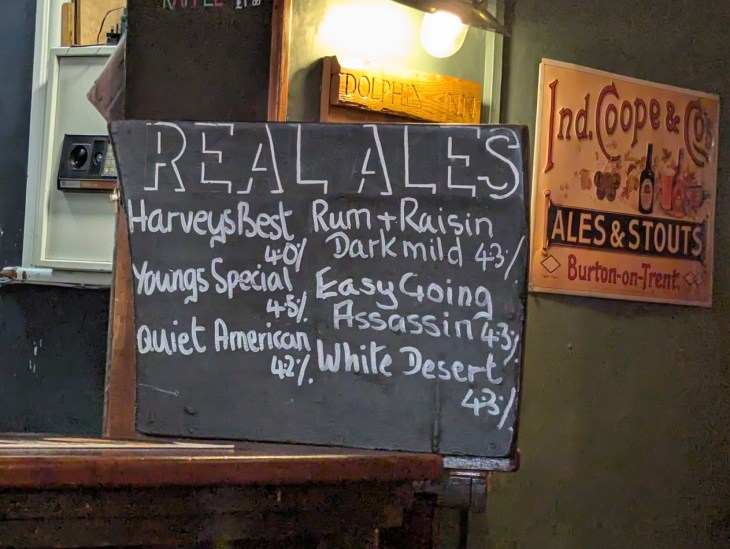 RAFFLE
DOLPHIN
REAL ALES
Harveys Best
4·0%
Youngs Special
4·5%
Quiet American
4·2%
Rum + Raisin
Dark mild 4·3%
Easy Going
Assassin 4·3%
White Desert
4·3%
Ind. Coope & Co's
ALES & STOUTS
Burton-on-Trent.